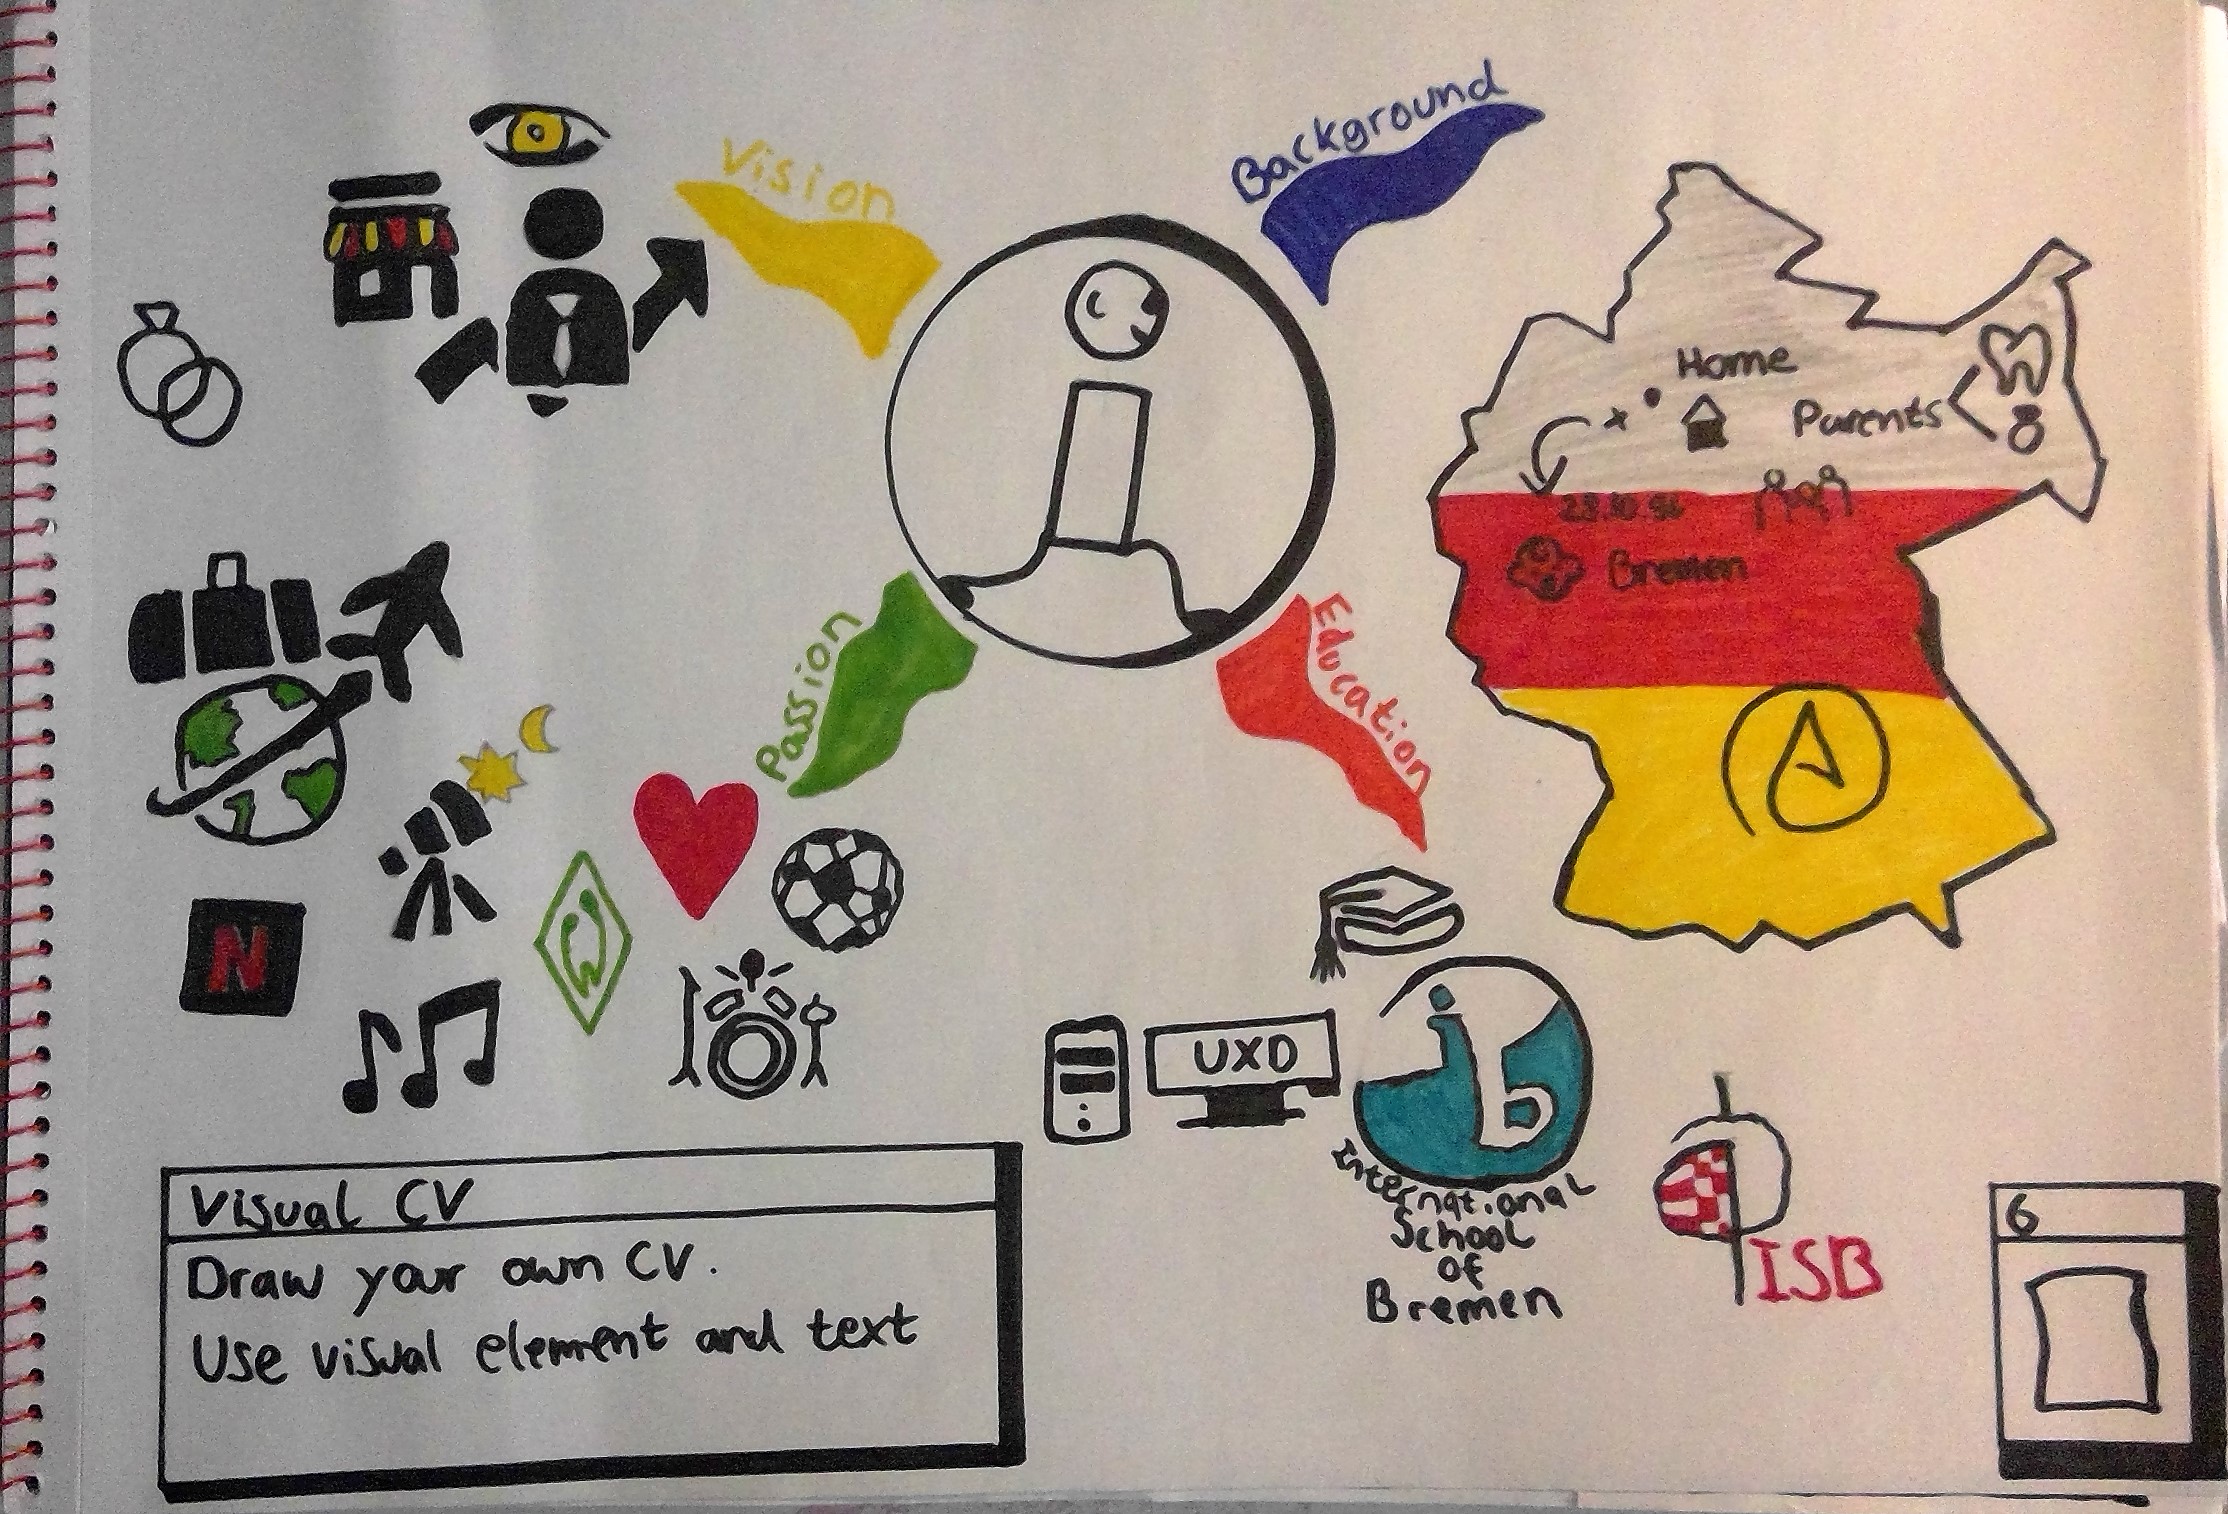 Vision
Background
Home
Parents
Bremen
Passion
Education
N
UXD
ib
International
School
of
Bremen
ISB
Visual CV
Draw your own CV.
Use visual element and text
6